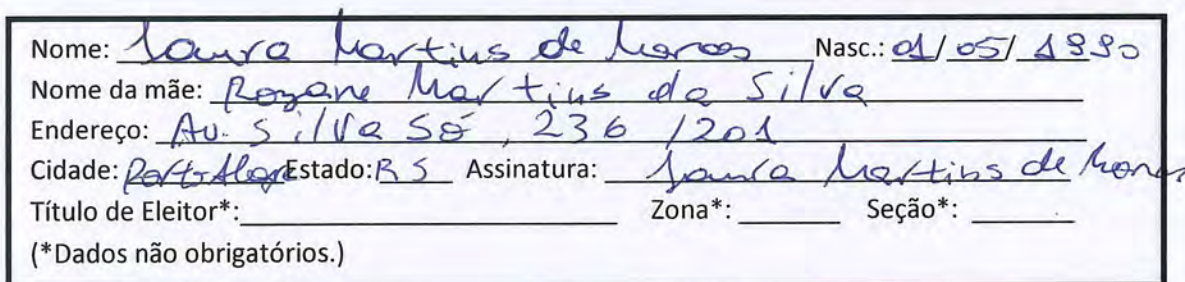 Nome: Laura Martins de Moraes Nasc.: 01/05/1990
Nome da mãe: Rozane Martins da Silva
Endereço: Av. Silva Só, 236 /201
Cidade: Porto Alegre Estado: RS Assinatura: Laura Martins de Moraes
Título de Eleitor*: Zona*: Seção*:
(*Dados não obrigatórios.)